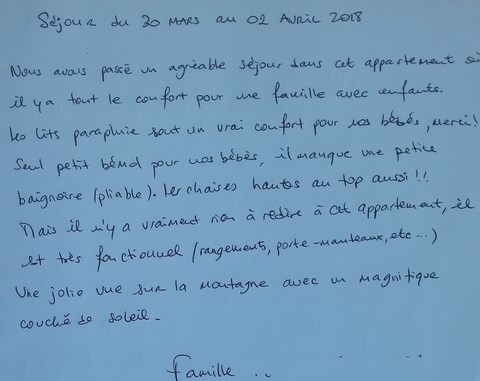 Séjour du 30 MARS au 02 AVRIL 2018
Nous avons passé un agréable séjour dans cet appartement où
il y a tout le confort pour une famille avec enfants.
Les lits parapluie sont un vrai confort pour nos bébés, merci!
Seul petit bémol pour nos bébés, il manque une petite
baignoire (pliable). Les chaises hautes au top aussi!!
Mais il n'y a vraiment rien à redire à cet appartement, il
est très fonctionnel (rangements, porte-manteaux, etc...)
Une jolie vue sur la montagne avec un magnifique
couché de soleil.
Famille